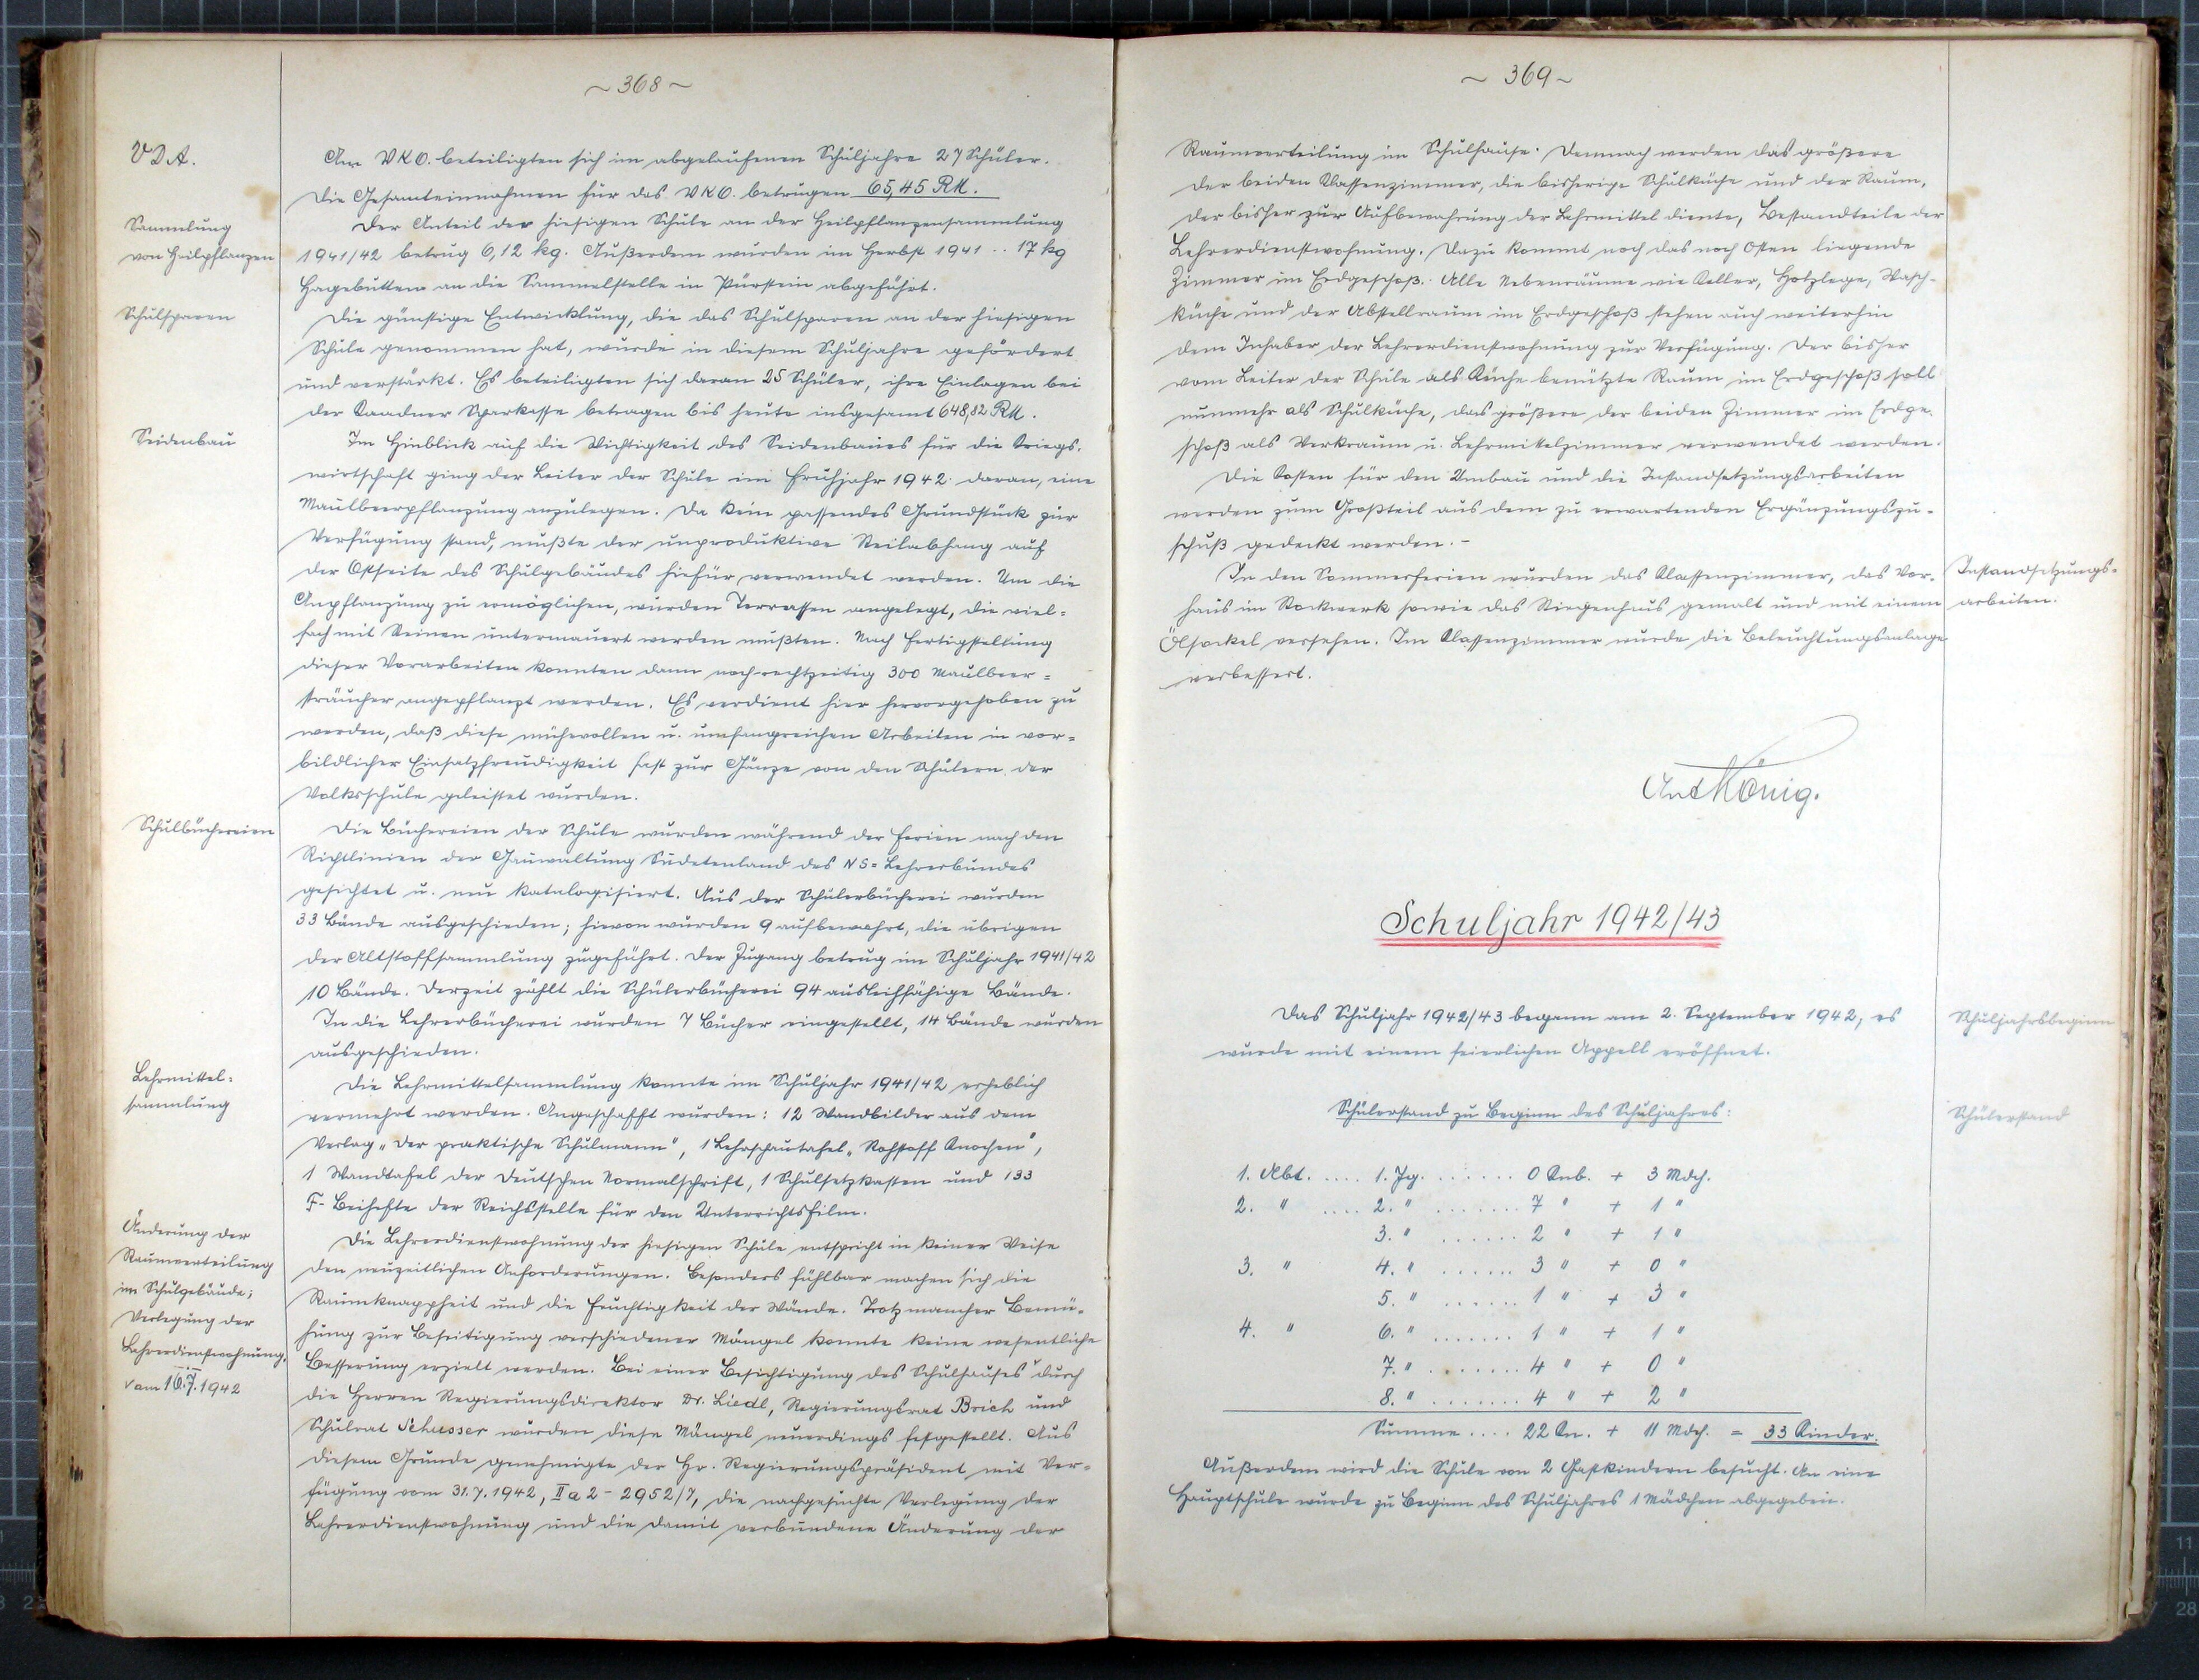 ~ 368 ~
VDA.
Am VKO. beteiligten sich im abgelaufenen Schuljahre 27 Schüler.
Die Gesamteinnahmen für das VKO. betrugen 65,45 RM.
Sammlung
von Heilpflanzen
Der Anteil der hiesigen Schule an der Heilpflanzensammlung
1941/42 betrug 6,12 kg. Außerdem wurden im Herbst 1941 .. 17 kg
Hagebutten an die Sammelstelle in Pürstein abgeführt.
Schulsparen
Die günstige Entwicklung, die das Schulsparen an der hiesigen
Schule genommen hat, wurde in diesem Schuljahre gefördert
und verstärkt. Es beteiligten sich daran 25 Schüler, ihre Einlagen bei
der Kaadner Sparkasse betragen bis heute insgesamt 648,82 RM.
Seidenbau
Im Hinblick auf die Wichtigkeit des Seidenbaues für die Kriegs-
wirtschaft ging der Leiter der Schule im Frühjahr 1942 daran, eine
Maulbeerpflanzung anzulegen. Da kein passendes Grundstück zur
Verfügung stand, mußte der unproduktive Steilabhang auf
der Ostseite des Schulgebäudes hiefür verwendet werden. Um die
Anpflanzung zu ermöglichen, wurden Terrassen angelegt, die viel=
fach mit Steinen untermauert werden mußten. Nach Fertigstellung
dieser Vorarbeiten konnten dann noch rechtzeitig 300 Maulbeer=
sträucher angepflanzt werden. Es verdient hier hervorgehoben zu
werden, daß diese mühevollen u. umfangreichen Arbeiten in vor=
bildlicher Einsatzfreudigkeit fast zur Gänze von den Schülern der
Volksschule geleistet wurden.
Schulbüchereien
Die Büchereien der Schule wurden während der Ferien nach den
Richtlinien der Gauwaltung Sudetenland des NS=Lehrerbundes
gesichtet u. neu katalogisiert. Aus der Schülerbücherei wurden
33 Bände ausgeschieden; hievon wurden 9 aufbewahrt, die übrigen
der Altstoffsammlung zugeführt. Der Zugang betrug im Schuljahr 1941/42
10 Bände. Derzeit zählt die Schülerbücherei 94 ausleihfähige Bände.
In die Lehrerbücherei wurden 7 Bücher eingestellt, 14 Bände wurden
ausgeschieden.
Lehrmittel=
sammlung
Die Lehrmittelsammlung konnte im Schuljahr 1941/42 erheblich
vermehrt werden. Angeschafft wurden: 12 Wandbilder aus dem
Verlag „Der praktische Schulmann", 1 Lehrschautafel „Rohstoff Knochen",
1 Wandtafel der Deutschen Normalschrift, 1 Schulsetzkasten und 133
F-Beihefte der Reichsstelle für den Unterrichtsfilm.
Änderung der
Raumverteilung
im Schulgebäude;
Verlegung der
Lehrerdienstwohnung.
v am 16.7.1942
Die Lehrerdienstwohnung der hiesigen Schule entspricht in keiner Weise
den neuzeitlichen Anforderungen. Besonders fühlbar machen sich die
Raumknappheit und die Feuchtigkeit der Wände. Trotz mancher Bemü-
hung zur Beseitigung verschiedener Mängel konnte keine wesentliche
Besserung erzielt werden. Bei einer Besichtigung des Schulhauses v durch
die Herren Regierungsdirektor Dr. Liedl, Regierungsrat Brich und
Schulrat Schusser wurden diese Mängel neuerdings festgestellt. Aus
diesem Grunde genehmigte der Hr. Regierungspräsident mit Ver=
fügung vom 31.7.1942, II a 2 - 2952/7, die nachgesuchte Verlegung der
Lehrerdienstwohnung und die damit verbundene Änderung der
~ 369 ~
Raumverteilung im Schulhause. Demnach werden das größere
der beiden Klassenzimmer, die bisherige Schulküche und der Raum,
der bisher zur Aufbewahrung der Lehrmittel diente, Bestandteile der
Lehrerdienstwohnung. Dazu kommt noch das nach Osten liegende
Zimmer im Erdgeschoß. Alle Nebenräume wie Keller, Holzlege, Wasch-
küche und der Abstellraum im Erdgeschoß stehen auch weiterhin
dem Inhaber der Lehrerdienstwohnung zur Verfügung. Der bisher
vom Leiter der Schule als Küche benützte Raum im Erdgeschoß soll
nunmehr als Schulküche, das größere der beiden Zimmer im Erdge-
schoß als Werkraum u. Lehrmittelzimmer verwendet werden.
Die Kosten für den Umbau und die Instandsetzungsarbeiten
werden zum Großteil aus dem zu erwartenden Ergänzungszu-
schuß gedeckt werden. -
In den Sommerferien wurden das Klassenzimmer, das Vor-
haus im Stockwerk sowie das Stiegenhaus gemalt und mit einem
Ölsockel versehen. Im Klassenzimmer wurde die Beleuchtungsanlage
verbessert.
Instandsetzungs-
arbeiten.
Ant König.
Schuljahr 1942/43
Das Schuljahr 1942/43 begann am 2. September 1942; es
wurde mit einem feierlichen Appell eröffnet.
Schuljahrsbeginn
Schülerstand zu Beginn des Schuljahres:
Schülerstand
1. Abt. .... 1. Jg. ....... 0 Knb. + 3 Mdch.
2. " .... 2. " ....... 7 " + 1 "
3. " ...... 2 " + 1 "
3. " 4. " ...... 3 " + 0 "
5. " ...... 1 " + 3 "
4. " 6. " ....... 1 " + 1 "
7. " ....... 4 " + 0 "
8. " ....... 4 " + 2 "
Summe .... 22 Kn. + 11 Mdch. = 33 Kinder.
Außerdem wird die Schule von 2 Gastkindern besucht. An eine
Hauptschule wurde zu Beginn des Schuljahres 1 Mädchen abgegeben.